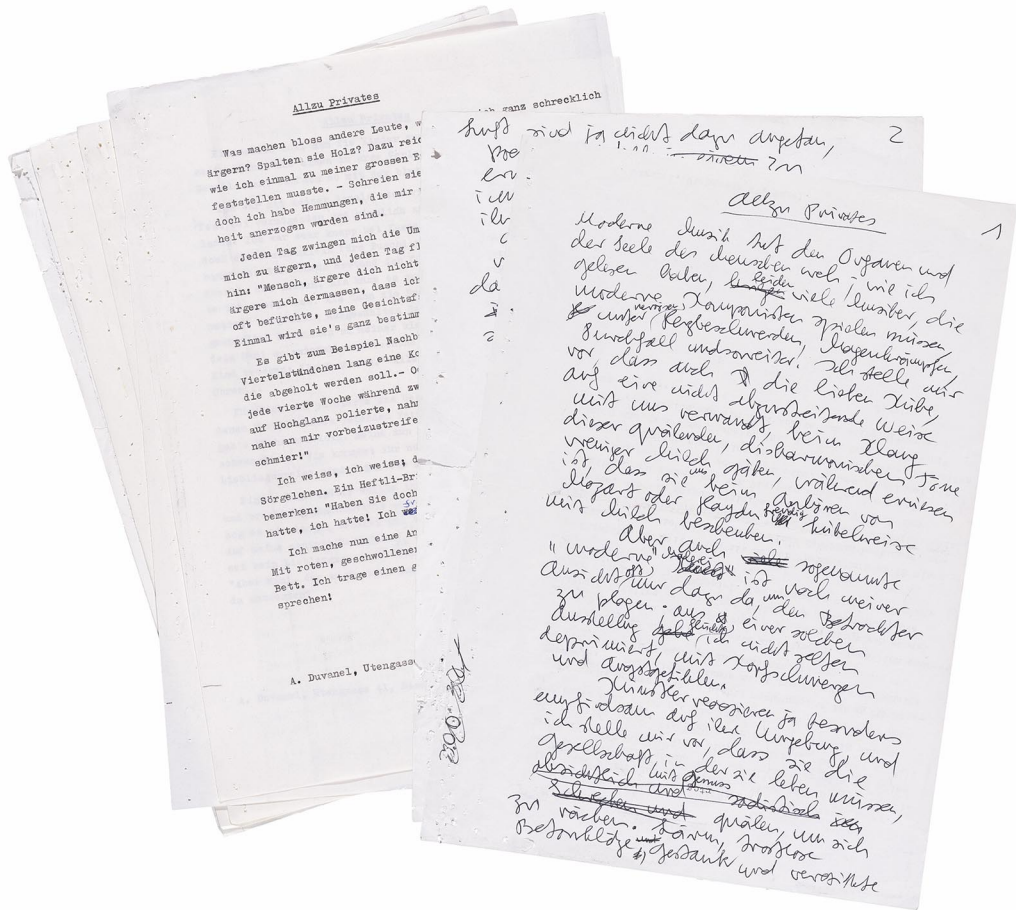 Allzu Privates
Was machen bloss andere Leute, w
ich ganz schrecklich
ärgern? Spalten sie Holz? Dazu reic
wie ich einmal zu meiner grossen E
feststellen musste. - Schreien sie
doch ich habe Hemmungen, die mir
heit anerzogen worden sind.
Jeden Tag zwingen mich die Um
mich zu ärgern, und jeden Tag fl
hin: "Mensch, ärgere dich nicht
ärgere mich dermassen, dass ich
oft befürchte, meine Gesichtsf
Einmal wird sie's ganz bestimm
Es gibt zum Beispiel Nachb
Viertelstündchen lang eine Ko
die abgeholt werden soll.- Oc
jede vierte Woche während zw
auf Hochglanz polierte, nahm
nahe an mir vorbeizustreife
schmier!"
Ich weiss, ich weiss; d
Sörgelchen. Ein Heftli-Br
bemerken: "Haben Sie doch
hatte, ich hatte! Ich
Ich mache nun eine An
Mit roten, geschwollene
Bett. Ich trage einen g
sprechen!
A. Duvanel, Utengass
2
sind ja nicht dazu angetan,
in
er
ich
ihr
da
Allzu Privates
1
Moderne Musik tut den Organen und
der Seele des Menschen weh; wie ich
gelesen habe, leiden viele Musiker, die
moderne Komponisten spielen müssen,
unter Herzbeschwerden, Magenkrämpfen,
Durchfall undsoweiter. Ich stelle mir
vor, dass auch die lieben Kühe,
auf eine nicht abzustreitende Weise
mit uns verwandt, beim Klang
dieser quälenden, disharmonischen Töne
weniger Milch gäben, während erwiesen
ist, dass sie uns beim Anhören von
Mozart oder Haydn freudig kübelweise
mit Milch beschenken.
Aber auch sogenannte
"moderne" ist nach meiner
Ansicht oft nur dazu da, um den Betrachter
zu plagen. aus einer solchen
Ausstellung flüchte ich nicht selten
deprimiert, mit Kopfschmerzen
und Angstgefühlen.
Künstler reagieren ja besonders
empfindsam auf ihre Umgebung, und
ich stelle mir vor, dass sie die
Gesellschaft, in der sie leben müssen,
absichtlich und mit Genuss sadistisch
schrecken und quälen, um sich
zu rächen. Lärm, trostlose
Betonklötze, Gestank und vergiftete